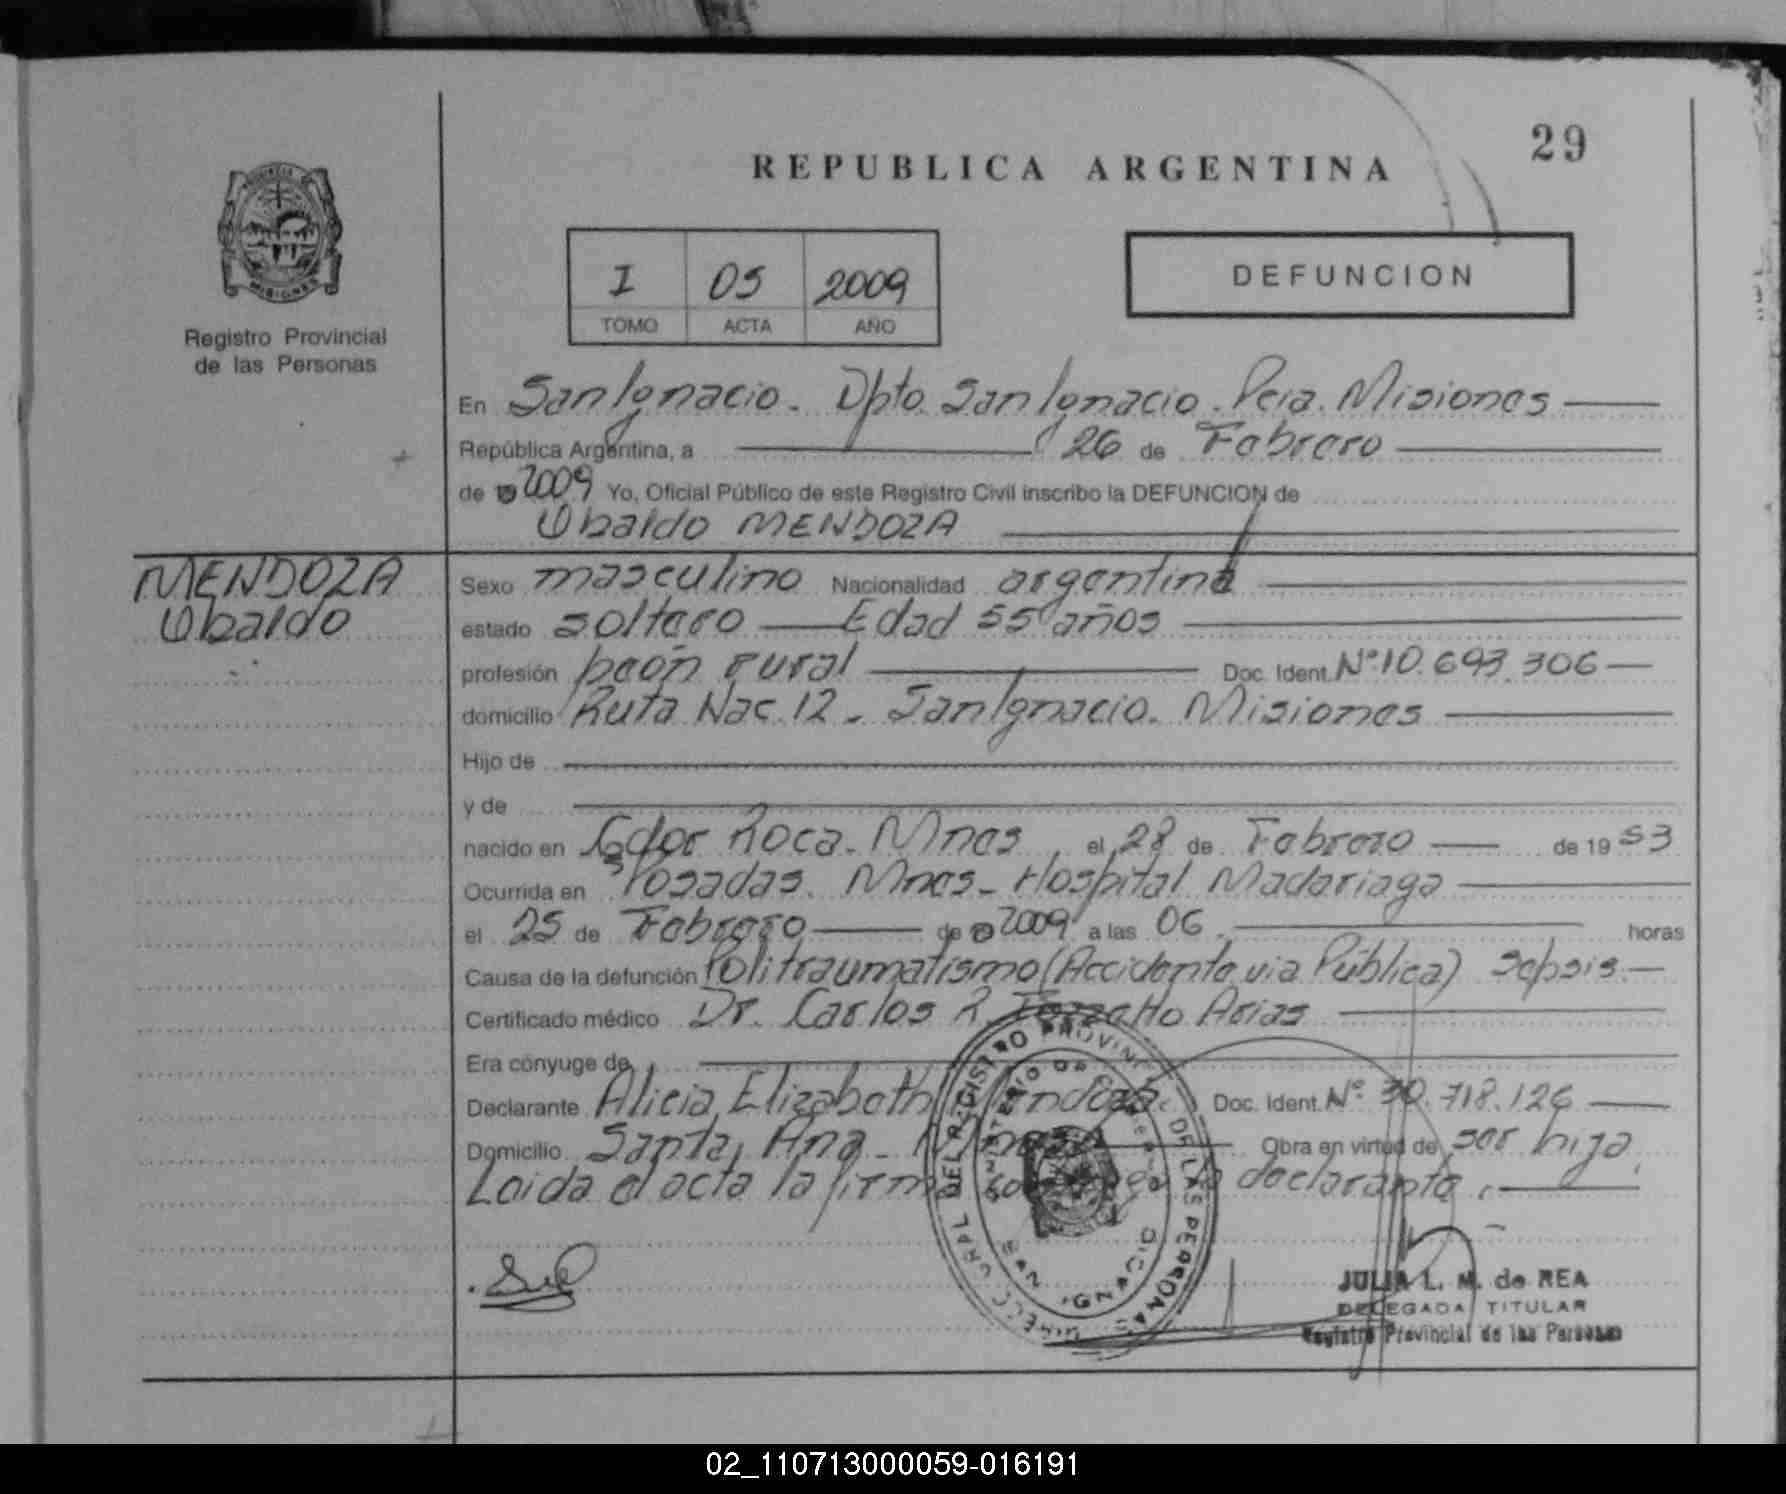 29
REPUBLICA ARGENTINA
PROVINCIA
MISIONES
Registro Provincial
de las Personas
I 05 2009
TOMO ACTA AÑO
DEFUNCION
En San Ignacio. Dpto. San Ignacio. Pcia. Misiones
República Argentina, a 26 de Febrero
de 2009 Yo, Oficial Público de este Registro Civil inscribo la DEFUNCION de
Ubaldo MENDOZA
MENDOZA
Ubaldo
Sexo masculino Nacionalidad argentina
estado soltero Edad 55 años
profesión peón rural Doc. Ident. Nº 10.693.306
domicilio Ruta Nac. 12 - San Ignacio. Misiones
Hijo de
y de
nacido en Gdor Roca. Mnes el 28 de Febrero de 1953
Ocurrida en Posadas. Mnes - Hospital Madariaga
el 25 de Febrero de 2009 a las 06 horas
Causa de la defunción Politraumatismo (Accidente via Pública) Sepsis
Certificado médico Dr. Carlos R. Arias
Era cónyuge de
Declarante Alicia Elizabeth Mendoza. Doc. Ident. Nº 30.718.126
Domicilio Santa Ana - Mnes Obra en virtud de ser hija.
Leida el acta la firma la declarante.
DIRECC. GRAL. DEL REGISTRO PROVINC. DE LAS PERSONAS
MINISTERIO DE
SAN IGNACIO
JULIA L. M. de REA
DELEGADA TITULAR
Registro Provincial de las Personas
02_110713000059-016191